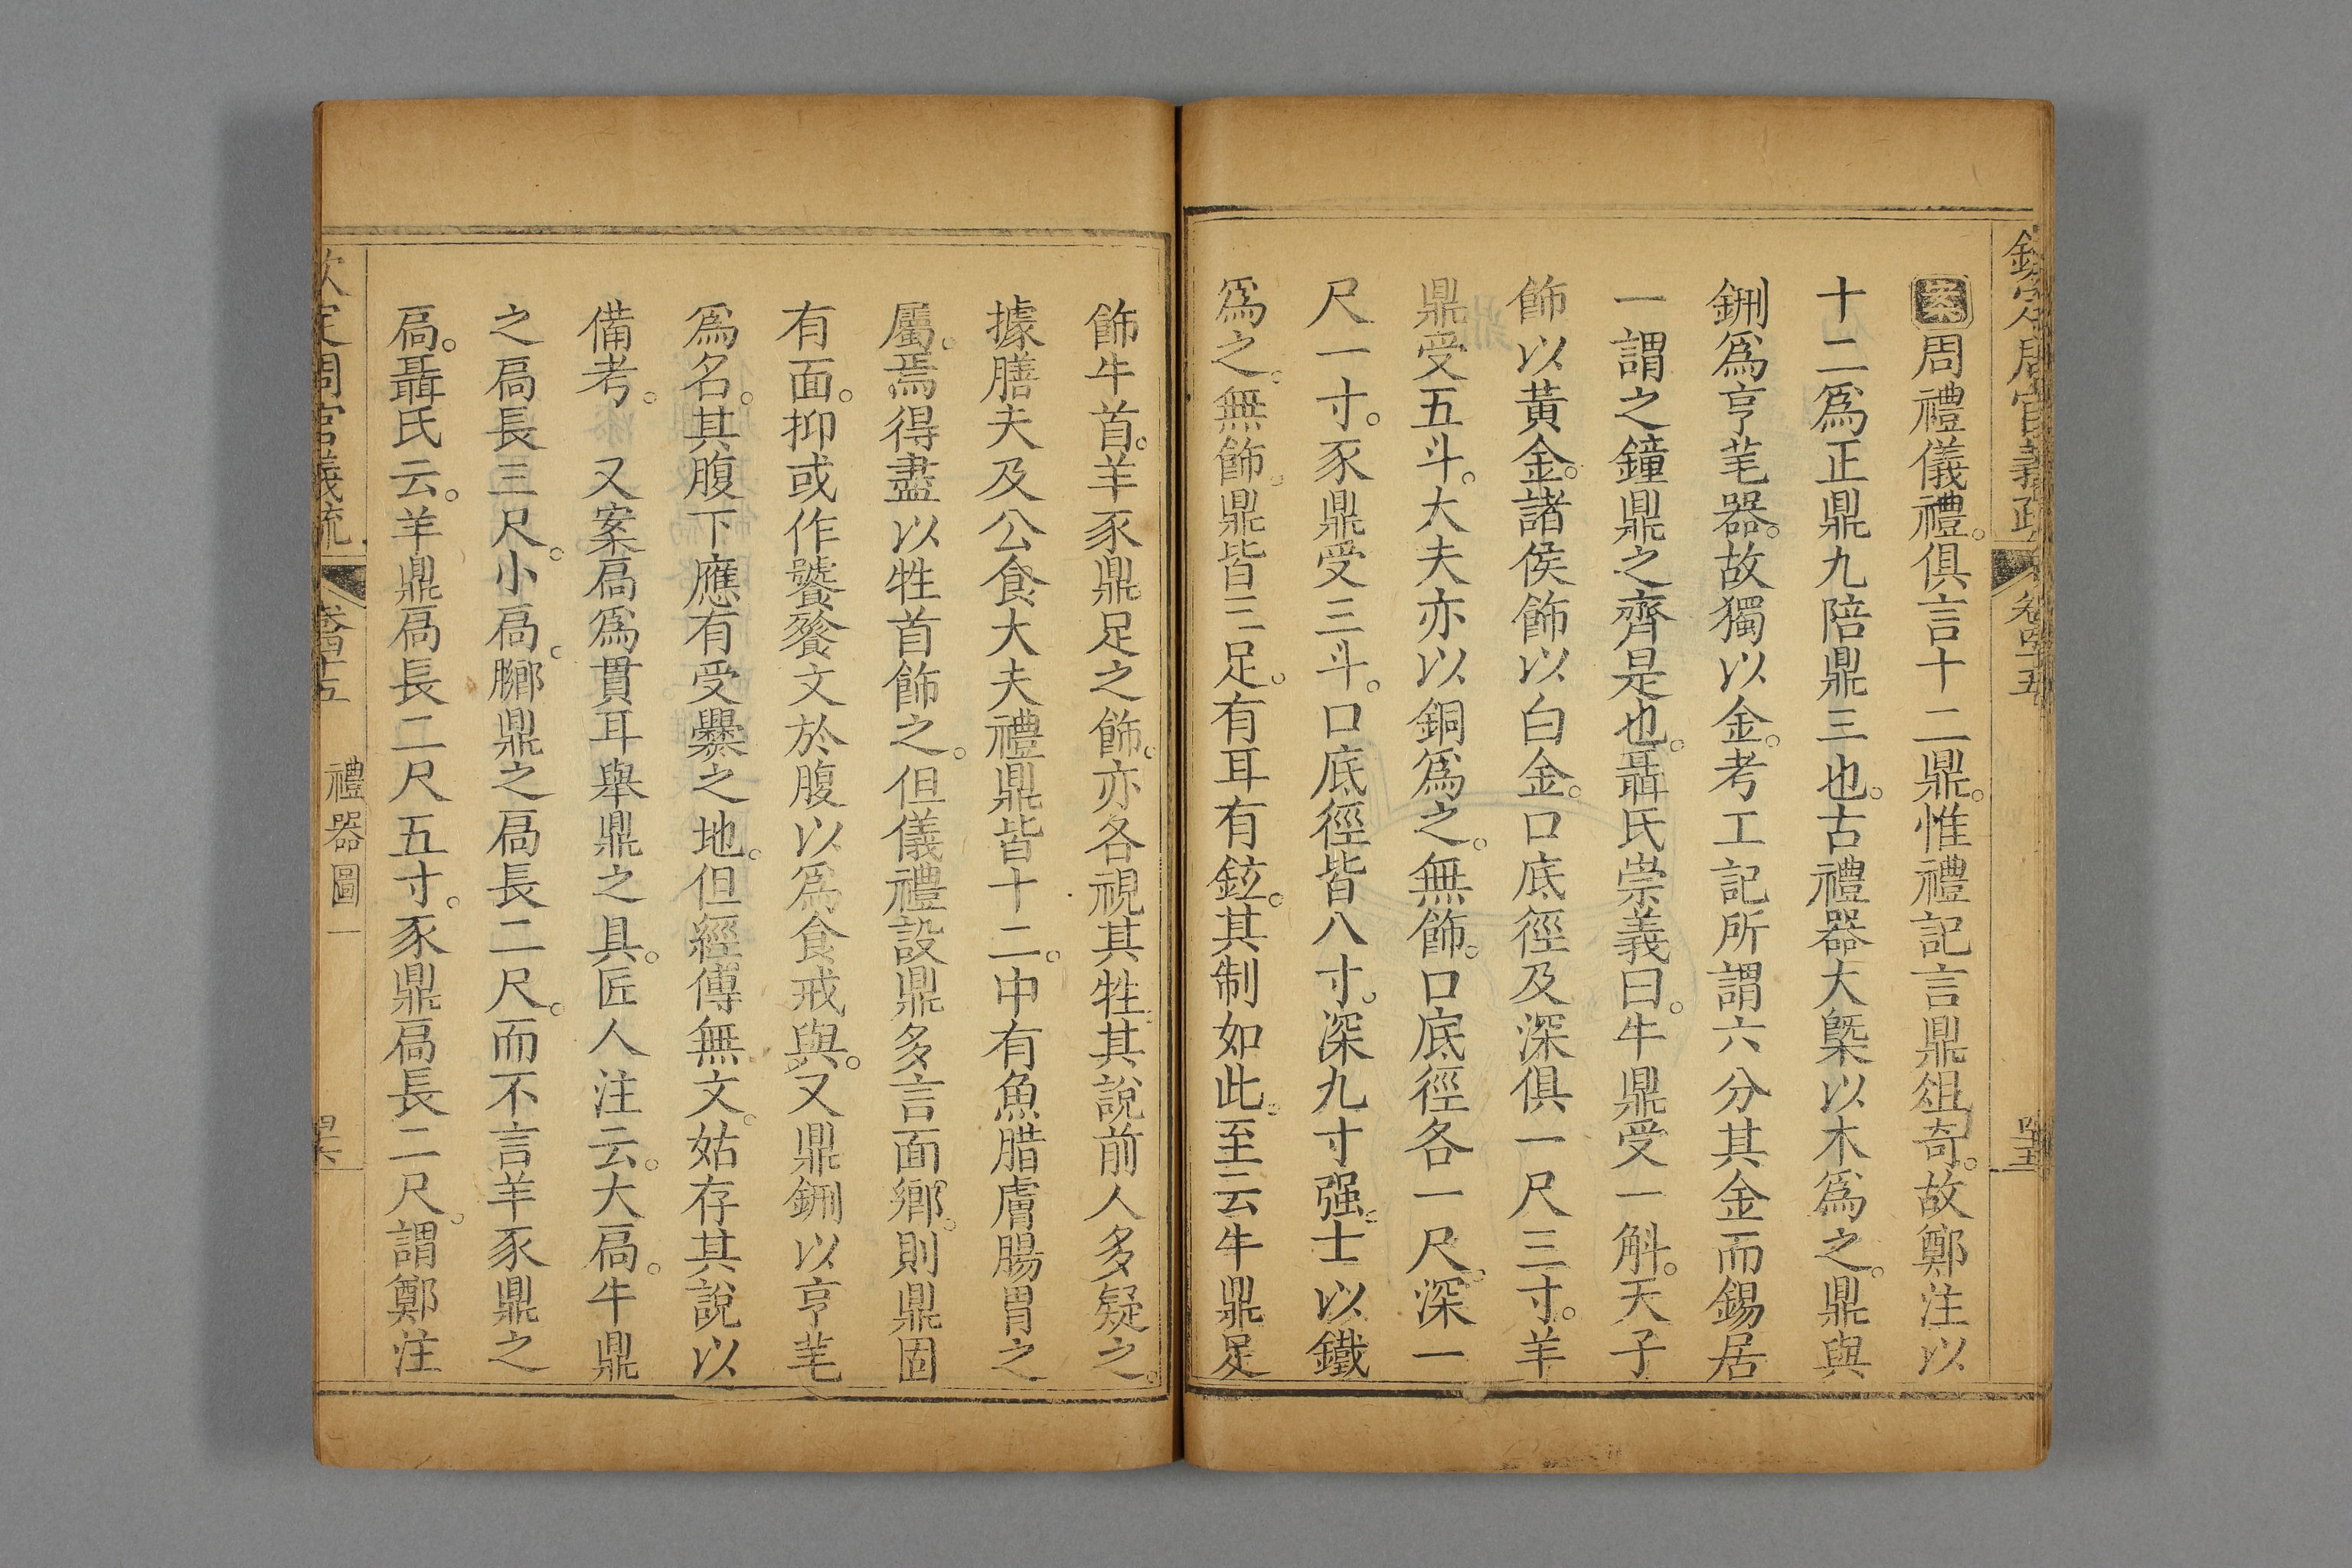 欽定周官義疏 卷四十五
案周禮儀禮。俱言十二鼎。惟禮記言鼎俎奇。故鄭注以
十二爲正鼎九陪鼎三也。古禮器大槩以木爲之。鼎與
鉶爲亨芼器。故獨以金。考工記所謂六分其金而錫居
一謂之鐘鼎之齊是也。聶氏崇義曰。牛鼎受一斛。天子
飾以黃金。諸侯飾以白金。口底徑及深俱一尺三寸。羊
鼎受五斗。大夫亦以銅爲之。無飾。口底徑各一尺。深一
尺一寸。豕鼎受三斗。口底徑皆八寸。深九寸强。士以鐵
爲之。無飾。鼎皆三足。有耳有鉉。其制如此。至云牛鼎足
飾牛首。羊豕鼎足之飾。亦各視其牲。其說前人多疑之。
據膳夫及公食大夫禮鼎皆十二。中有魚腊膚腸胃之
屬。焉得盡以牲首飾之。但儀禮設鼎多言面鄉。則鼎固
有面。抑或作饕餮文於腹以爲食戒與。又鼎鉶以亨芼
爲名。其腹下應有受爨之地。但經傳無文。姑存其說以
備考。 又案扃爲貫耳舉鼎之具。匠人注云。大扃。牛鼎
之扃長三尺。小扃。膷鼎之扃長二尺。而不言羊豕鼎之
扃。聶氏云。羊鼎扃長二尺五寸。豕鼎扃長二尺。謂鄭注
欽定周官義疏 卷四十五 禮器圖一